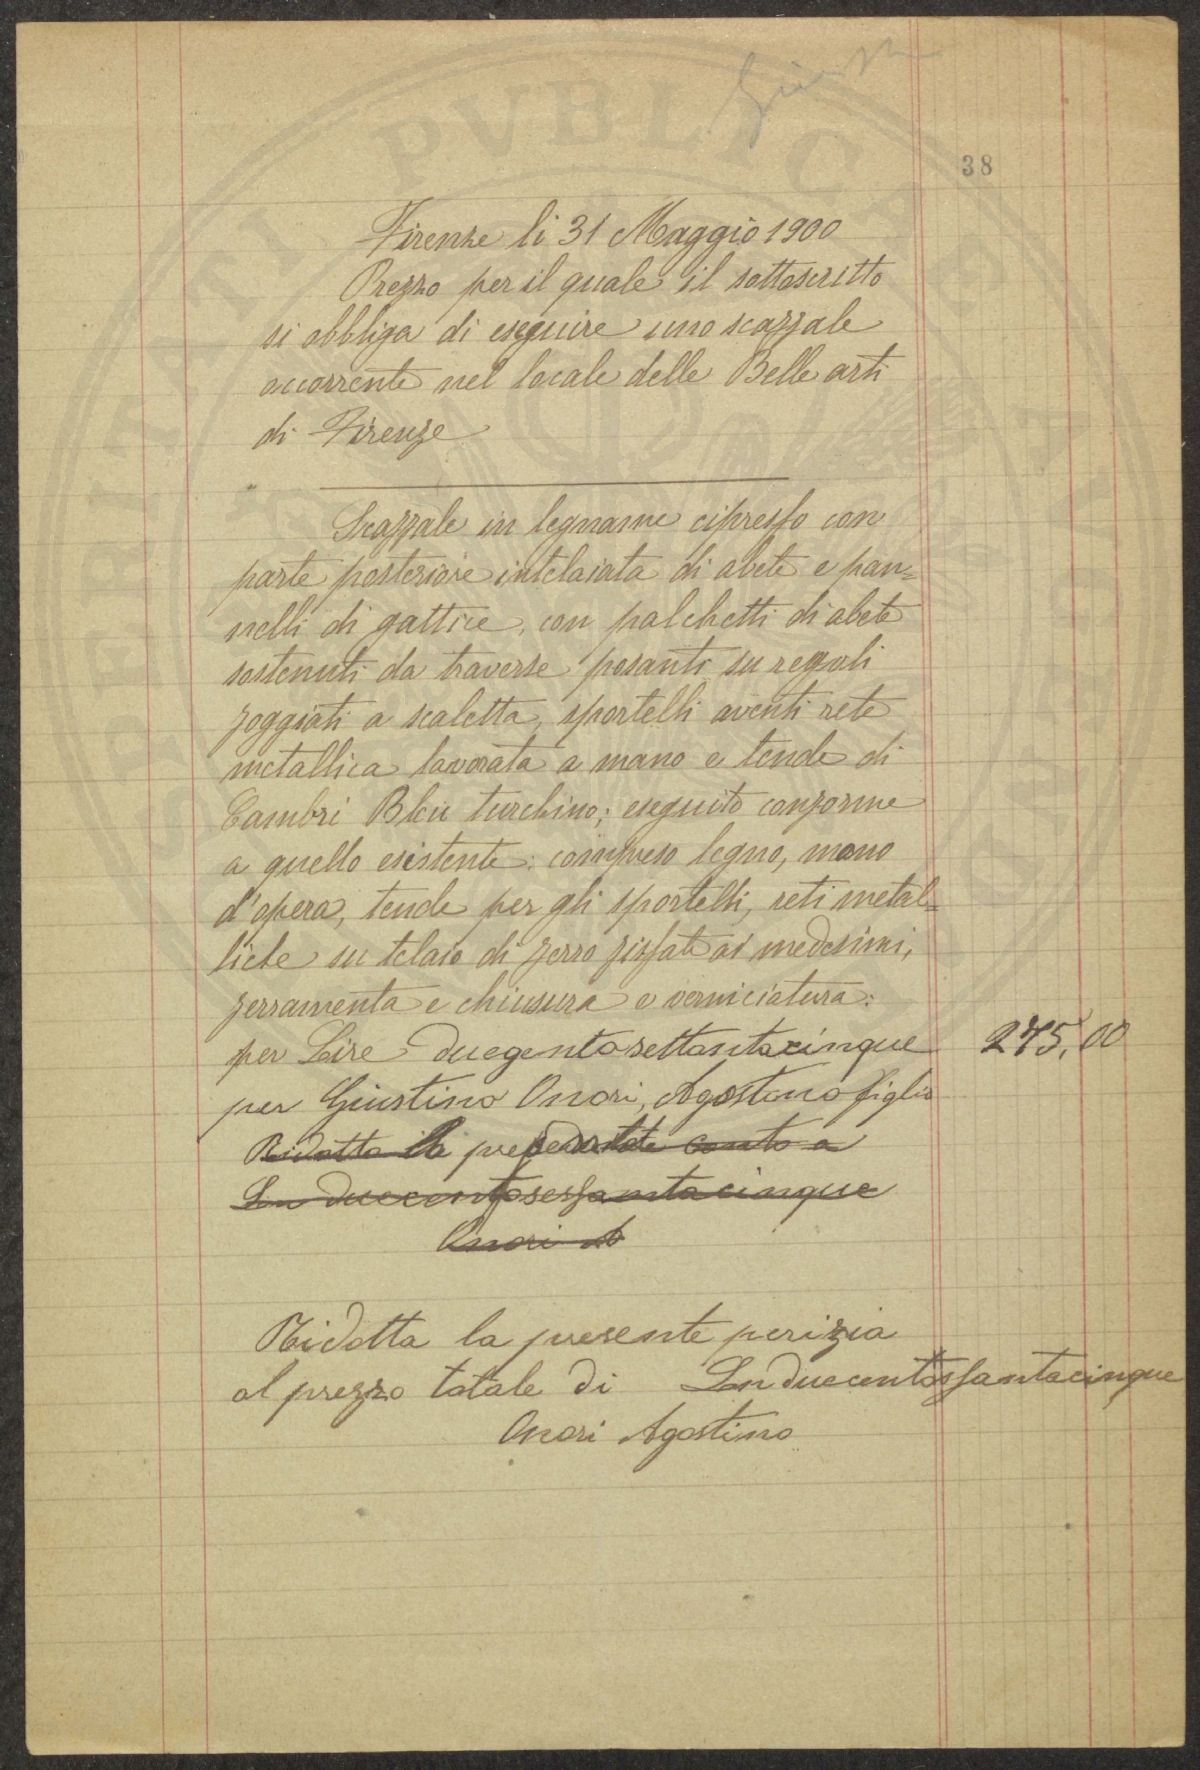 38
Firenze li 31 Maggio 1900
Prezzo per il quale il sottoscritto
si obbliga di eseguire uno scaffale
occorrente nel locale delle Belle arti
di Firenze
Scaffale in legname cipresso con
parte posteriore intelaiata di abete e pan=
nelli di gattice, con palchetti di abete
sostenuti da traverse posanti su regoli
foggiati a scaletta, sportelli aventi rete
metallica lavorata a mano e tende di
Cambrì Bleu turchino; eseguito conforme
a quello esistente: compreso legno, mano
d'opera, tende per gli sportelli, reti metal=
liche su telaio di ferro fissate ai medesimi,
ferramenta e chiusura e verniciatura:
per Lire duegentosettantacinque 275,00
per Giustino Onori, Agostino figlio
Ridotta la presente conto a
Ln duecentosessantacinque
Onori A
Ridotta la presente perizia
al prezzo totale di Ln duecentossantacinque
Onori Agostino